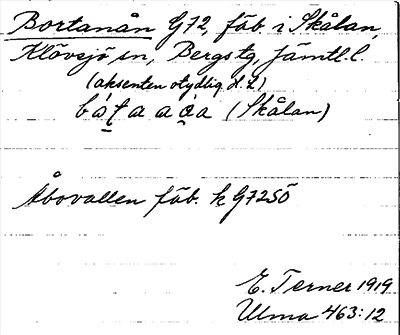 Bortanån G72, fäb. i Skålan,
Klövsjö sn, Bergs tg, Jämtl. l.
(aksenten otydlig H. L.)
(Skålan)
Åbovallen fäb. k G72SÖ
E. Terner 1919
Ulma 463:12